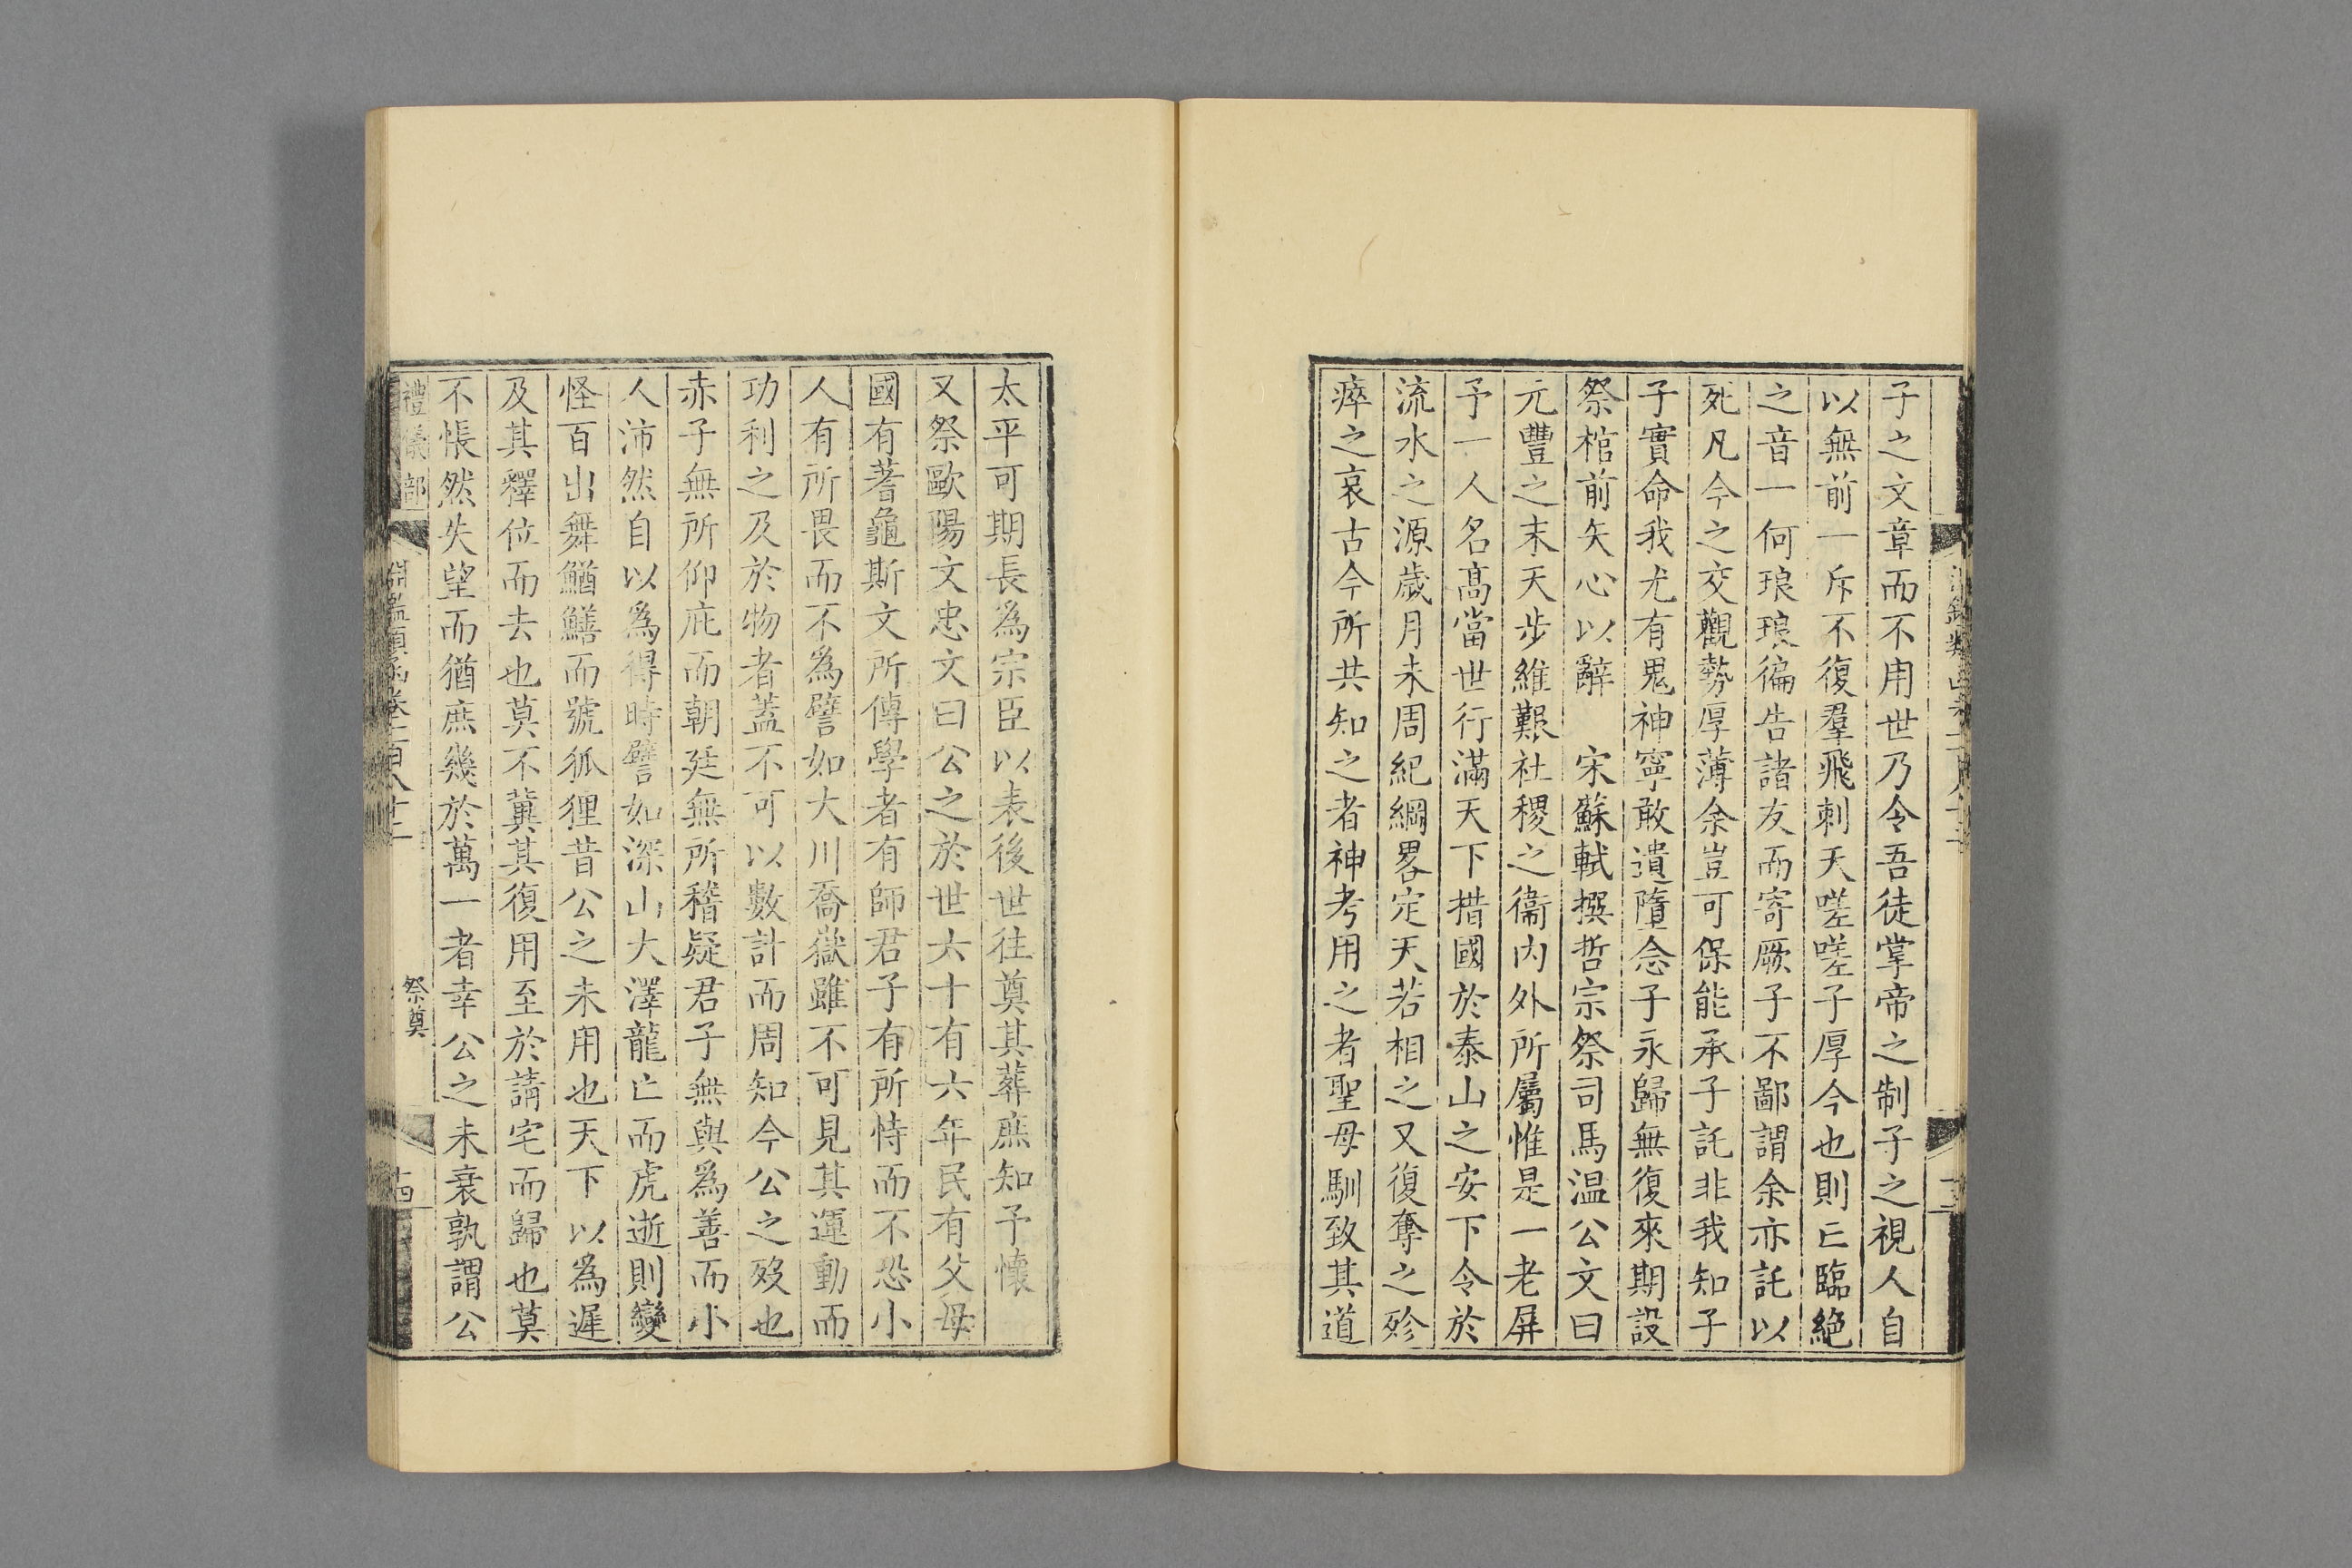 子之文章而不用世乃令吾徒掌帝之制子之視人自
以無前一斥不復羣飛刺天嗟嗟子厚今也則亡臨絶
之音一何琅琅徧告諸友而寄厥子不鄙謂余亦託以
死凡今之交觀勢厚薄余豈可保能承子託非我知子
子實命我尤有鬼神寧敢遺墮念子永歸無復來期設
祭棺前矢心以辭　宋蘇軾撰哲宗祭司馬温公文曰
元豐之末天步維艱社稷之衞内外所屬惟是一老屏
予一人名髙當世行滿天下措國於泰山之安下令於
流水之源歲月未周紀綱畧定天若相之又復奪之殄
瘁之哀古今所共知之者神考用之者聖母馴致其道
太平可期長為宗臣以表後世往奠其葬庶知予懷
又祭歐陽文忠文曰公之於世六十有六年民有父母
國有蓍龜斯文所傳學者有師君子有所恃而不恐小
人有所畏而不為譬如大川喬嶽雖不可見其運動而
功利之及於物者蓋不可以數計而周知今公之歿也
赤子無所仰庇而朝廷無所稽疑君子無與爲善而小
人沛然自以爲得時譬如深山大澤龍亡而虎逝則變
怪百出舞鰌鱔而號狐狸昔公之未用也天下以為遲
及其釋位而去也莫不冀其復用至於請宅而歸也莫
不悵然失望而猶庶幾於萬一者幸公之未衰孰謂公
禮儀部　淵鑑類函卷一百八十二　祭奠　十四